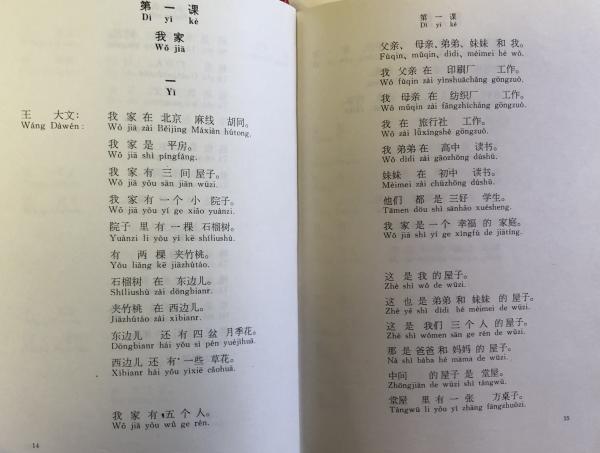 第一课
Dì yī kè
我家
Wǒ jiā
一
Yī
王 大文： 我 家 在 北京 麻线 胡同。
Wáng Dàwén: Wǒ jiā zài Běijīng Máxiàn hútong.
我 家 是 平房。
Wǒ jiā shì píngfáng.
我 家 有 三 间 屋子。
Wǒ jiā yǒu sān jiān wūzi.
我 家 有 一 个 小 院子。
Wǒ jiā yǒu yī ge xiǎo yuànzi.
院子 里 有 一 棵 石榴树。
Yuànzi li yǒu yī kē shíliushù.
有 两 棵 夹竹桃。
Yǒu liǎng kē jiāzhútáo.
石榴树 在 东边儿。
Shíliushù zài dōngbianr.
夹竹桃 在 西边儿。
Jiāzhútáo zài xībianr.
东边儿 还 有 四 盆 月季花。
Dōngbianr hái yǒu sì pén yuèjìhuā.
西边儿 还 有 一些 草花。
Xībianr hái yǒu yīxiē cǎohuā.
我 家 有 五 个 人。
Wǒ jiā yǒu wǔ ge rén.
14
第一课
Dì yī kè
父亲、 母亲、弟弟、妹妹 和 我。
Fùqin, mǔqin, dìdi, mèimei hé wǒ.
我 父亲 在 印刷厂 工作。
Wǒ fùqin zài yìnshuāchǎng gōngzuò.
我 母亲 在 纺织厂 工作。
Wǒ mǔqin zài fǎngzhīchǎng gōngzuò.
我 在 旅行社 工作。
Wǒ zài lǚxíngshè gōngzuò.
我 弟弟 在 高中 读书。
Wǒ dìdi zài gāozhōng dúshū.
妹妹 在 初中 读书。
Mèimei zài chūzhōng dúshū.
他们 都 是 三好 学生。
Tāmen dōu shì sānhǎo xuésheng.
我 家 是 一个 幸福 的 家庭。
Wǒ jiā shì yī ge xìngfú de jiātíng.
这 是 我 的 屋子。
Zhè shì wǒ de wūzi.
这 也 是 弟弟 和 妹妹 的 屋子。
Zhè yě shì dìdi hé mèimei de wūzi.
这 是 我们 三 个 人 的 屋子。
Zhè shì wǒmen sān ge rén de wūzi.
那 是 爸爸 和 妈妈 的 屋子。
Nà shì bàba hé māma de wūzi.
中间 的 屋子 是 堂屋。
Zhōngjiān de wūzi shì tángwū.
堂屋 里 有 一 张 方桌子。
Tángwū li yǒu yī zhāng fāngzhuōzi.
15